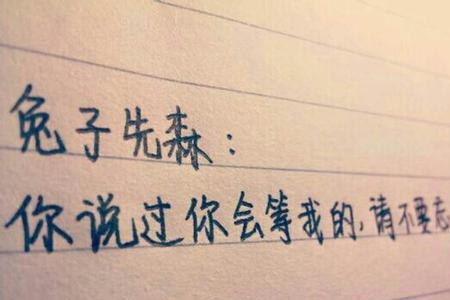 兔子先森：
你说过你会等我的，请不要忘